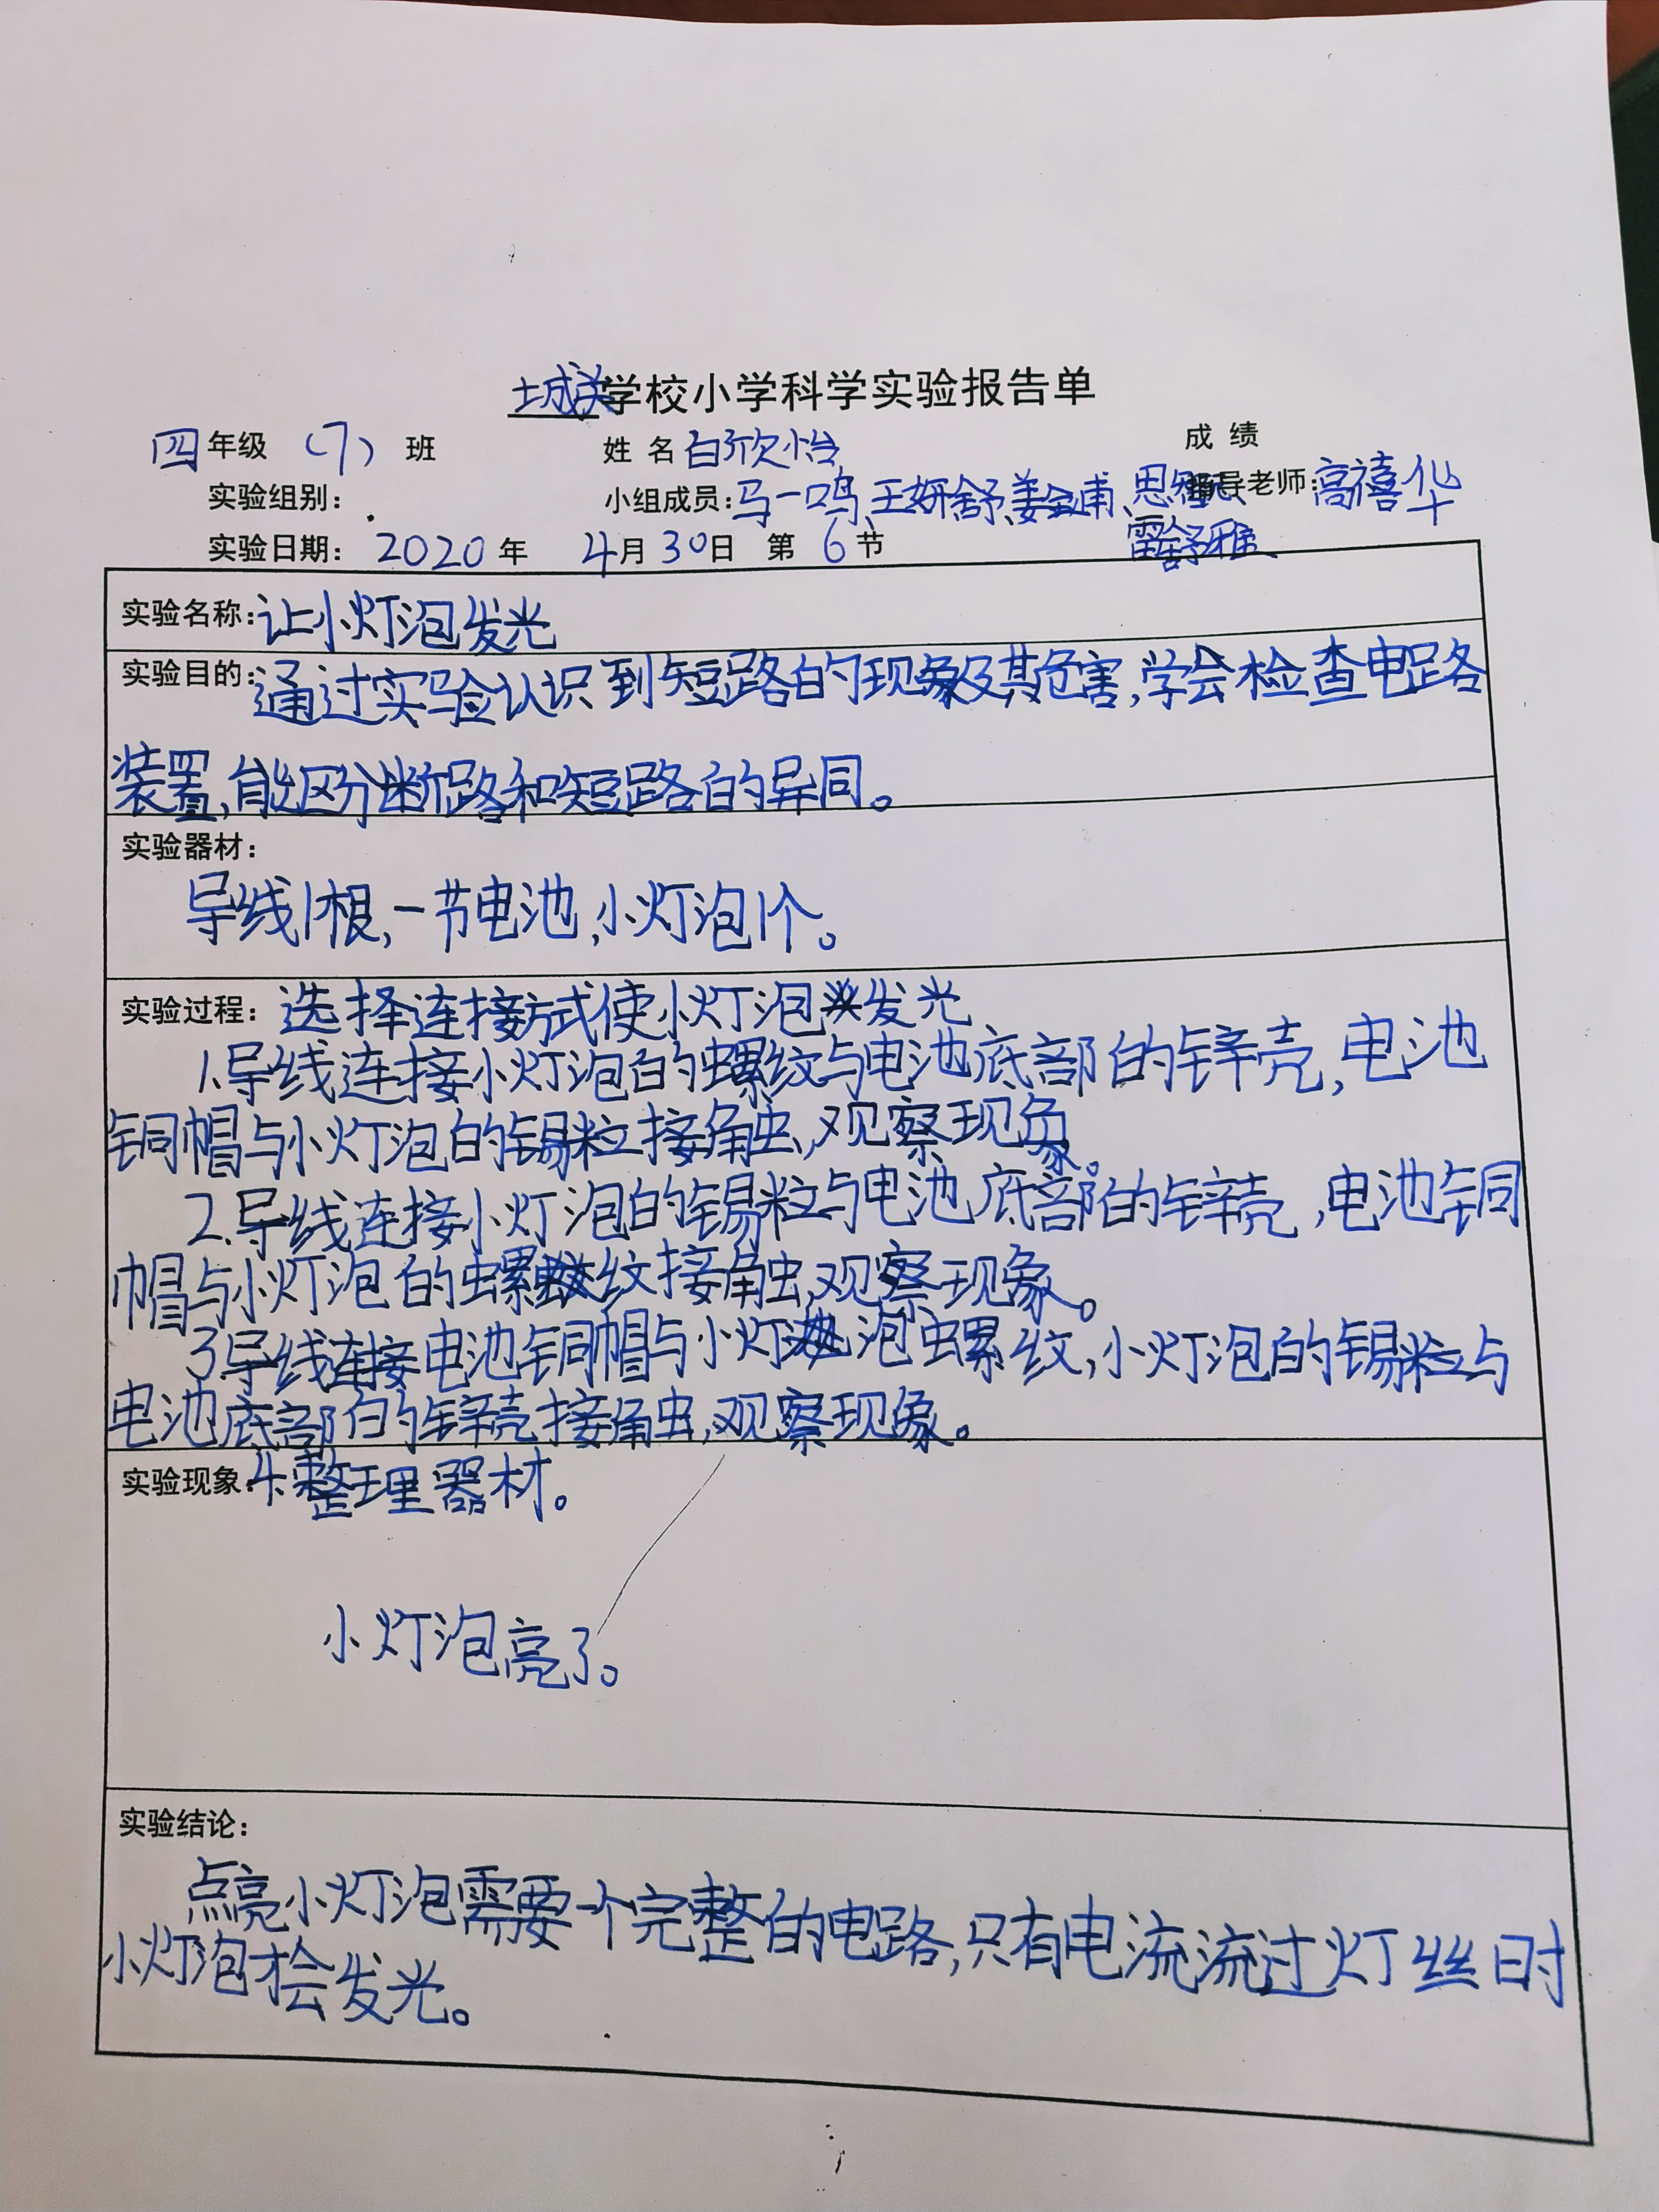 城关学校小学科学实验报告单
四年级 (7) 班 姓名白欣怡 成绩
实验组别: 小组成员:马一鸣、王妍舒、姜金甫、思 导老师:高禧华
雷舒雅
实验日期: 2020年 4月30日 第6节
实验名称:让小灯泡发光
实验目的:通过实验认识到短路的现象及其危害,学会检查电路
装置,能区分断路和短路的异同。
实验器材:
导线1根,一节电池,小灯泡1个。
实验过程:选择连接方式使小灯泡发光
1.导线连接小灯泡的螺纹与电池底部的锌壳,电池
铜帽与小灯泡的锡粒接触,观察现象。
2.导线连接小灯泡的锡粒与电池底部的锌壳,电池铜
帽与小灯泡的螺纹接触,观察现象。
3导线连接电池铜帽与小灯泡螺纹,小灯泡的锡粒与
电池底部的锌壳接触,观察现象。
实验现象:4.整理器材。
小灯泡亮了。
实验结论:
点亮小灯泡需要一个完整的电路,只有电流流过灯丝时
小灯泡才会发光。